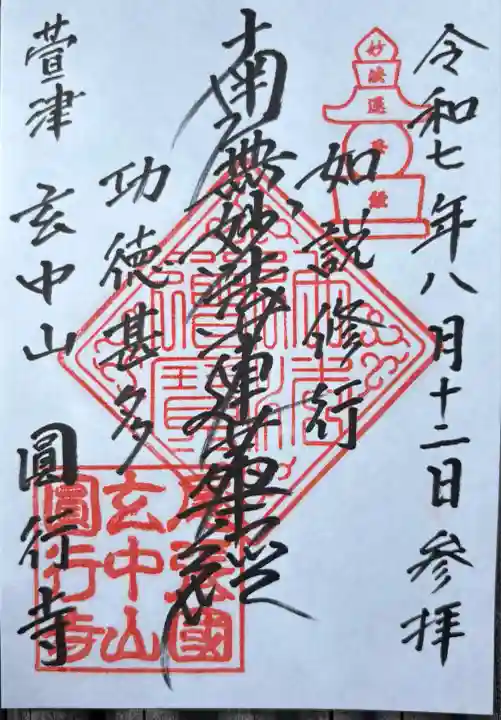 令和七年八月十二日参拝
妙法蓮華経
如説修行
南無妙法蓮華経
功徳甚多
萱津 玄中山 圓行寺
尾張國
玄中山
圓行寺